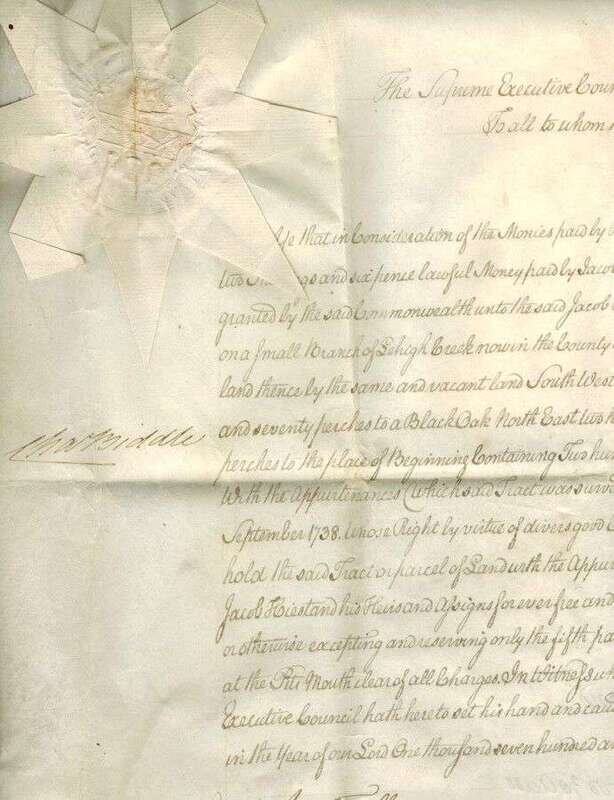 The Supreme Executive Coun
To all to whom
Ye that in Consideration of the Monies paid by
two and six pence lawful Money paid by Jacob
granted by the said Commonwealth unto the said Jacob
on a Small Branch of Lehigh Creek now in the County
land thence by the same and vacant land South West
and seventy perches to a Black Oak North East two
Cha Biddle
perches to the place of Beginning Containing Two hun
With the Appurtenances (which said Tract was surv
September 1738. whose Right by virtue of divers good
hold the said Tract or parcel of Land with the Appur
Jacob Hiestand his Heirs and Assigns for ever free and
or otherwise excepting and reserving only the fifth pa
at the Pits Mouth clear of all Charges. In Witness wh
Executive Council hath hereto set his hand and cau
in the Year of our Lord One thousand seven hundred a